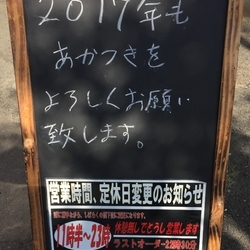 2017年も
あかつきを
よろしくお願い
致します。
営業時間、定休日変更のお知らせ
11時半～23時
休憩無しでとうし営業します
ラストオーダー22時30分